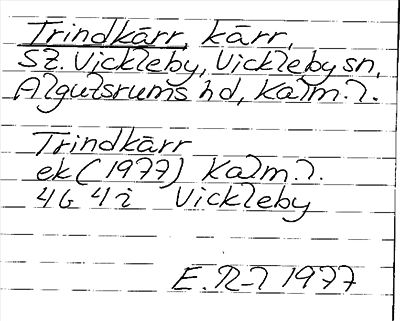 Trindkärr, kärr,
St. Vickleby, Vickleby sn,
Algutsrums hd, Kalm. l.
Trindkärr
ek (1977) Kalm. l.
4G 4i Vickleby
E. R-l 1977